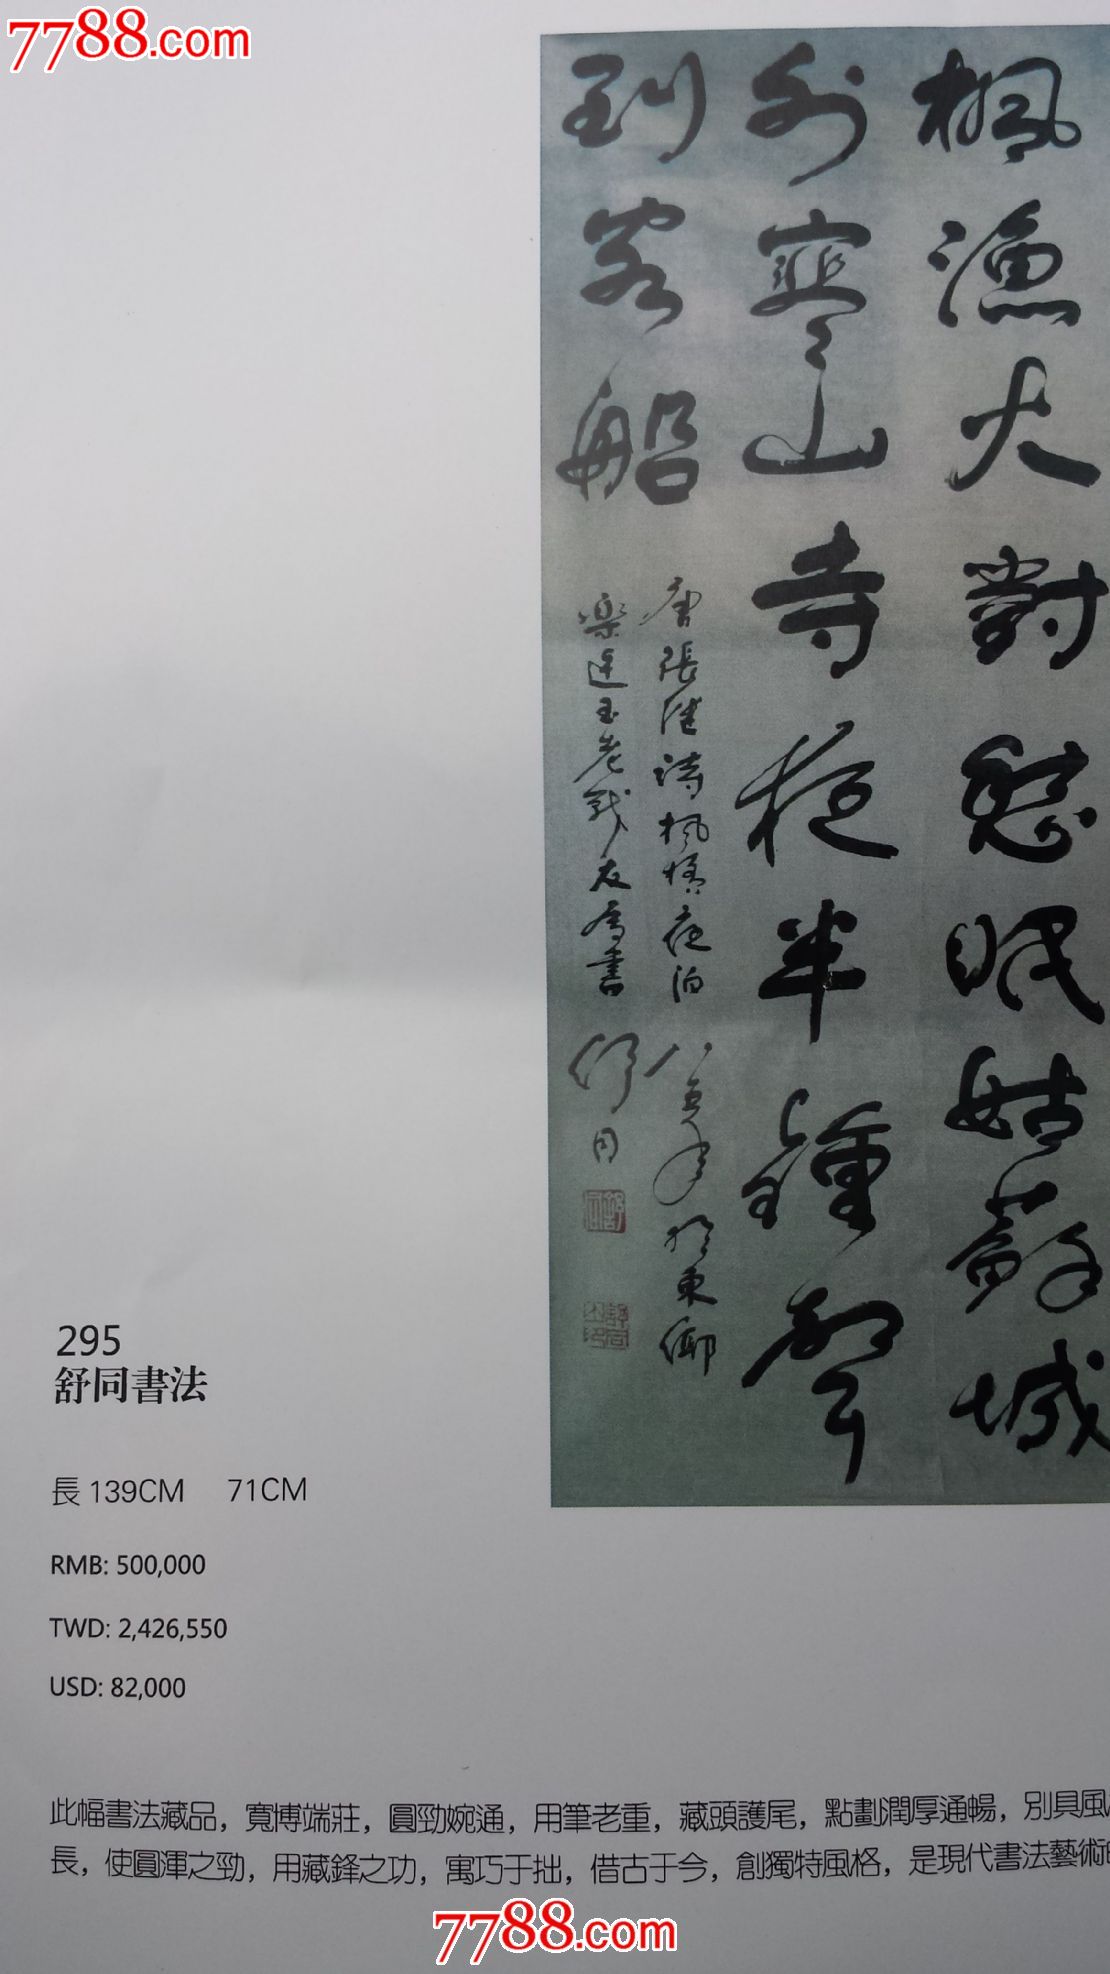 7788.com
楓漁火對愁眠姑蘇城
外寒山寺夜半鐘聲
到客船
唐張繼詩楓橋夜泊
八五年 於東鄉
樂 玉老戰友屬書
舒同
295
舒同書法
長 139CM 71CM
RMB: 500,000
TWD: 2,426,550
USD: 82,000
此幅書法藏品，寬博端莊，圓勁婉通，用筆老重，藏頭護尾，點劃潤厚通暢，別具風
長，使圓渾之勁，用藏鋒之功，寓巧于拙，借古于今，創獨特風格，是現代書法藝術
7788.com